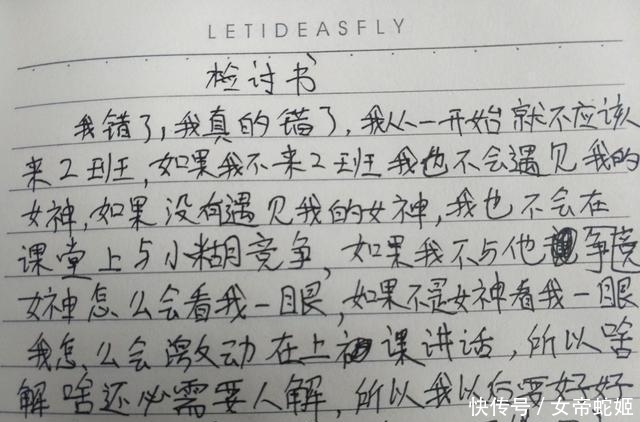 LETIDEASFLY
检讨书
我错了，我真的错了，我从一开始就不应该
来2班，如果我不来2班我也不会遇见我的
女神，如果没有遇见我的女神，我也不会在
课堂上与小糊竞争，如果我不与他争
女神怎么会看我一眼，如果不是女神看我一眼
我怎么会激动在上课讲话，所以啥
解啥还必需要人解，所以我以后要好好
快传号／女帝蛇姬